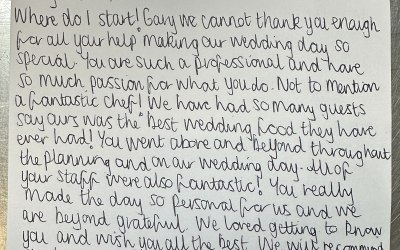 Where do I start! Gary we cannot thank you enough
for all your help making our wedding day so
special. You are such a professional and have
so much passion for what you do. Not to mention
a fantastic chef! We have had so many guests
say ours was the best wedding food they have
ever had! You went above and beyond throughout
the planning and on our wedding day. All of
your staff were also fantastic! You really
made the day so personal for us and we
are beyond grateful. We loved getting to know
you and wish you all the best. We will recommend